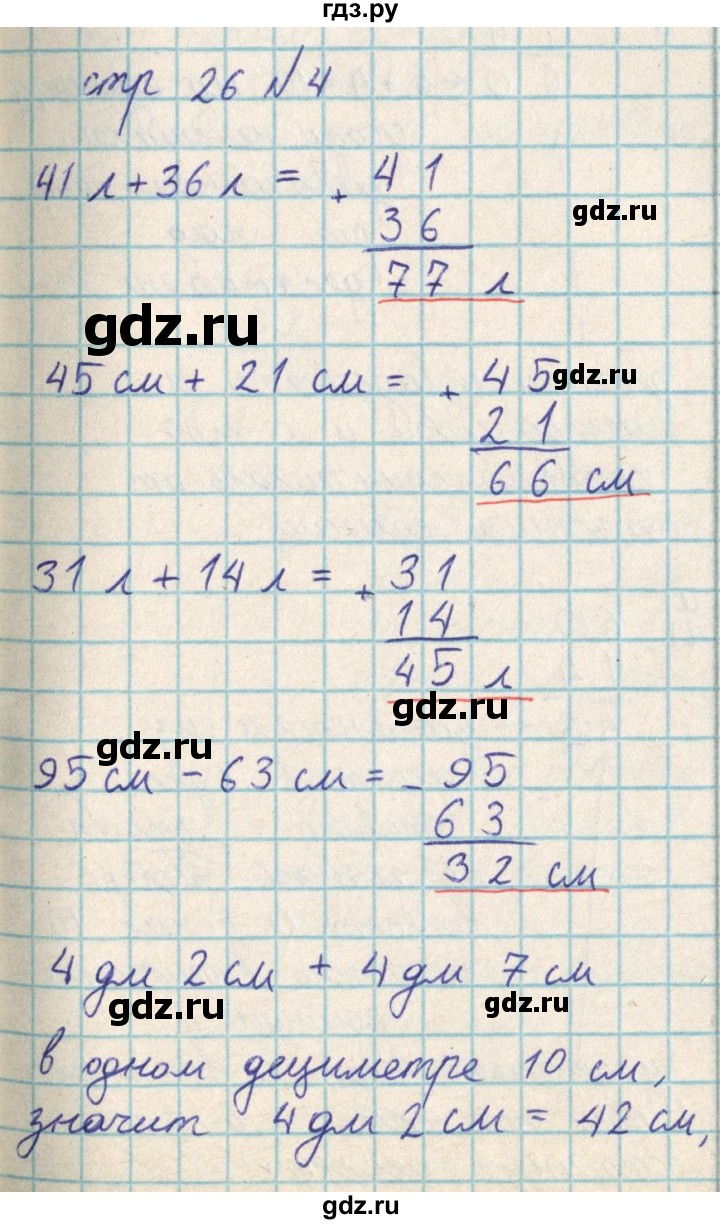 гдз.ру
стр 26 №4
41 л + 36 л = + 41
gdz.ru
36
77 л
gdz.ru
45 см + 21 см = + 45
gdz.ru
21
66 см
31 л + 14 л = + 31
14
45 л
gdz.ru
gdz.ru
95 см - 63 см = - 95
63
32 см
4 дм 2 см + 4 дм 7 см
gdz.ru
gdz.ru
в одном дециметре 10 см,
значит 4 дм 2 см = 42 см,
gdz.ru